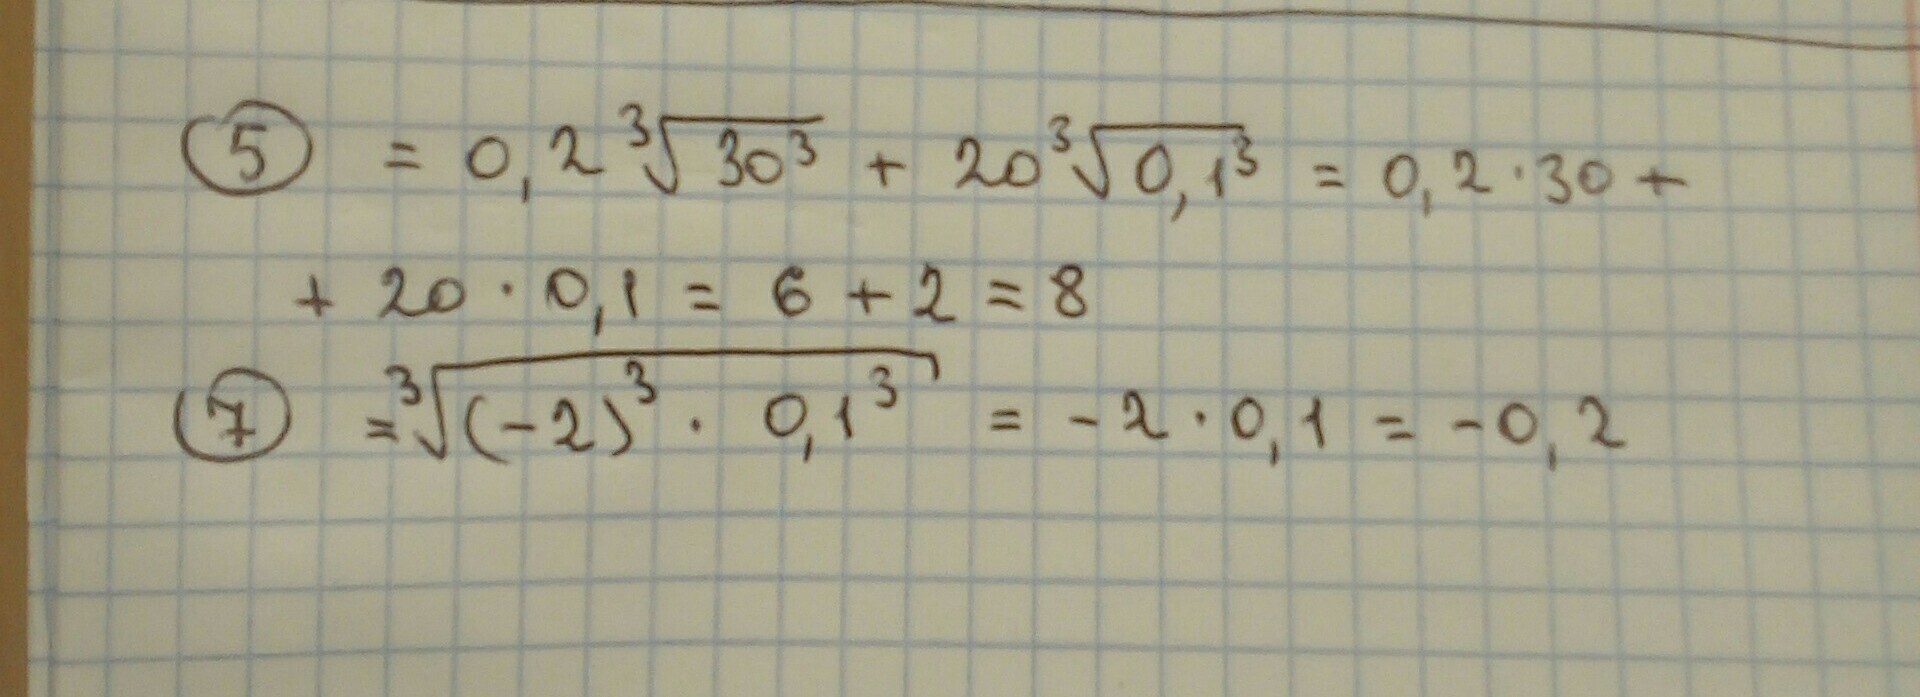 ⑤ = 0,2 ∛(30³) + 20 ∛(0,1³) = 0,2·30 +
+ 20 · 0,1 = 6 + 2 = 8
⑦ = ∛((-2)³ · 0,1³) = -2 · 0,1 = -0,2